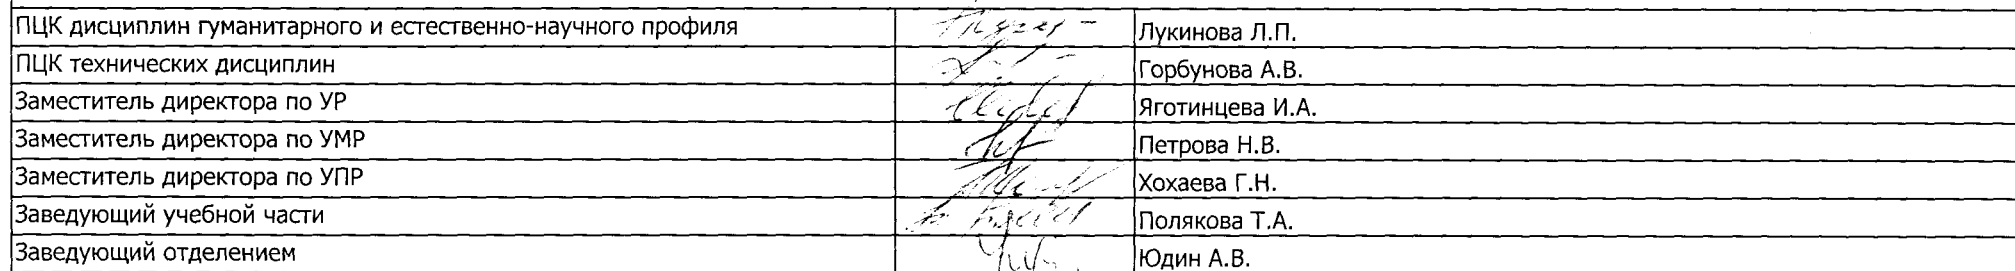 ПЦК дисциплин гуманитарного и естественно-научного профиля Лукинова Л.П.
ПЦК технических дисциплин Горбунова А.В.
Заместитель директора по УР Яготинцева И.А.
Заместитель директора по УМР Петрова Н.В.
Заместитель директора по УПР Хохаева Г.Н.
Заведующий учебной части Полякова Т.А.
Заведующий отделением Юдин А.В.